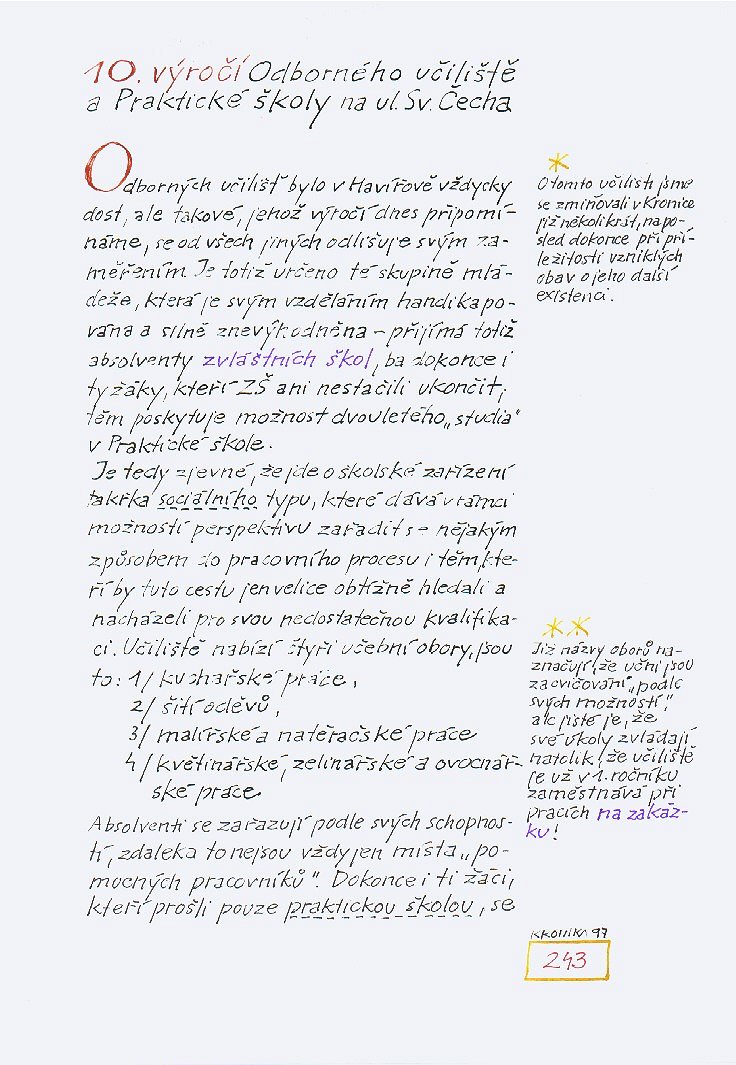 10. výročí Odborného učiliště
a Praktické školy na ul. Sv. Čecha
Odborných učilišť bylo v Havířově vždycky
dost, ale takové, jehož výročí dnes připomí-
náme, se od všech jiných odlišuje svým za-
měřením. Je totiž určeno té skupině mlá-
deže, která je svým vzděláním handikapo-
vána a silně znevýhodněna – přijímá totiž
absolventy zvláštních škol, ba dokonce i
ty žáky, kteří ZŠ ani nestačili ukončit;
těm poskytuje možnost dvouletého „studia“
v Praktické škole.
Je tedy zjevné, že jde o školské zařízení
takřka sociálního typu, které dává v rámci
možností perspektivu zařadit se nějakým
způsobem do pracovního procesu i těm, kte-
ří by tuto cestu jen velice obtížně hledali a
nacházeli pro svou nedostatečnou kvalifika-
ci. Učiliště nabízí čtyři učební obory, jsou
to: 1/ kuchařské práce,
2/ šití oděvů,
3/ malířské a natěračské práce
4/ květinářské, zelinářské a ovocnář-
ské práce
Absolventi se zařazují podle svých schopnos-
tí, zdaleka to nejsou vždy jen místa „po-
mocných pracovníků“. Dokonce i ti žáci,
kteří prošli pouze praktickou školou, se
*
O tomto učilišti jsme
se zmiňovali v Kronice
již několikrát, napo-
sled dokonce při pří-
ležitosti vzniklých
obav o jeho další
existenci.
**
Již názvy oborů na-
značují, že učni jsou
zacvičováni „podle
svých možností“,
ale jisté je, že
své úkoly zvládají
natolik, že učiliště
je už v 1. ročníku
zaměstnává při
pracích na zakáz-
ku!
KRONIKA 97
243